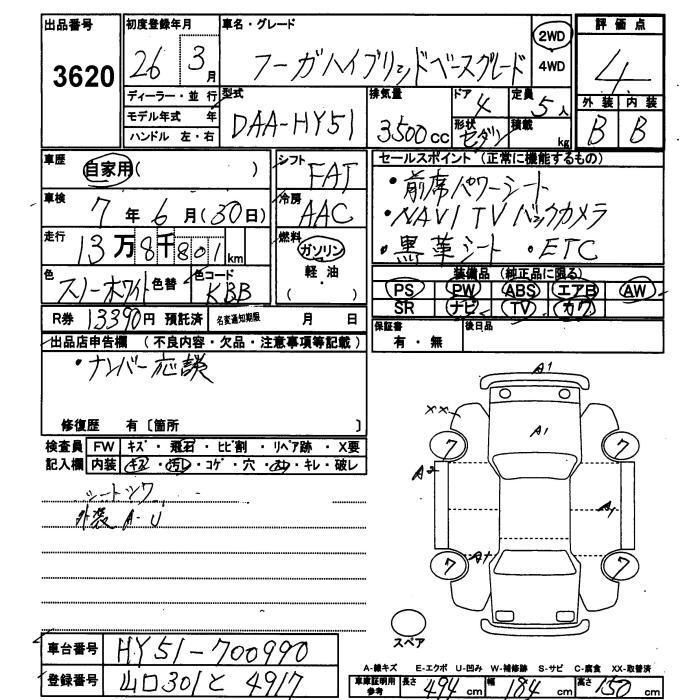 出品番号 初度登録年月 車名・グレード 評価点
3620 26年 3月 フーガハイブリッドベースグレード 2WD 4WD 4
ディーラー・並行 型式 排気量 ドア 定員 外装 内装
モデル年式 年 DAA-HY51 3500cc 4 5人 B B
ハンドル 左・右 形状 セダン 積載 kg
車歴 自家用( ) シフト FAT セールスポイント(正常に機能するもの)
車検 7年6月(30日) 冷房 AAC ・前席パワーシート
・NAVI TV バックカメラ
走行 13万8千801km 燃料 ガソリン ・黒革シート ・ETC
軽油
( )
色 スノーホワイト 色替 色コード KBB 装備品(純正品に限る)
PS PW ABS エアB AW
R券 13390円 預託済 名変通知期限 月 日 SR ナビ TV カワ
出品店申告欄(不良内容・欠品・注意事項等記載) 保証書 有・無 後日品
・ナンバー応談
修復歴 有〔箇所 〕
検査員 FW キズ・飛石・ヒビ割・リペア跡・X要
記入欄 内装 キズ・汚レ・コゲ・穴・スレ・キレ・破レ
シートシワ
外装 A-U
A1
XX
A1
7 7
A2
A1
7 7
スペア
車台番号 HY51-700990
登録番号 山口301と4917
A-線キズ E-エクボ U-凹み W-補修跡 S-サビ C-腐食 XX-取替済
車庫証明用参考 長さ 494cm 幅 184cm 高さ 150cm